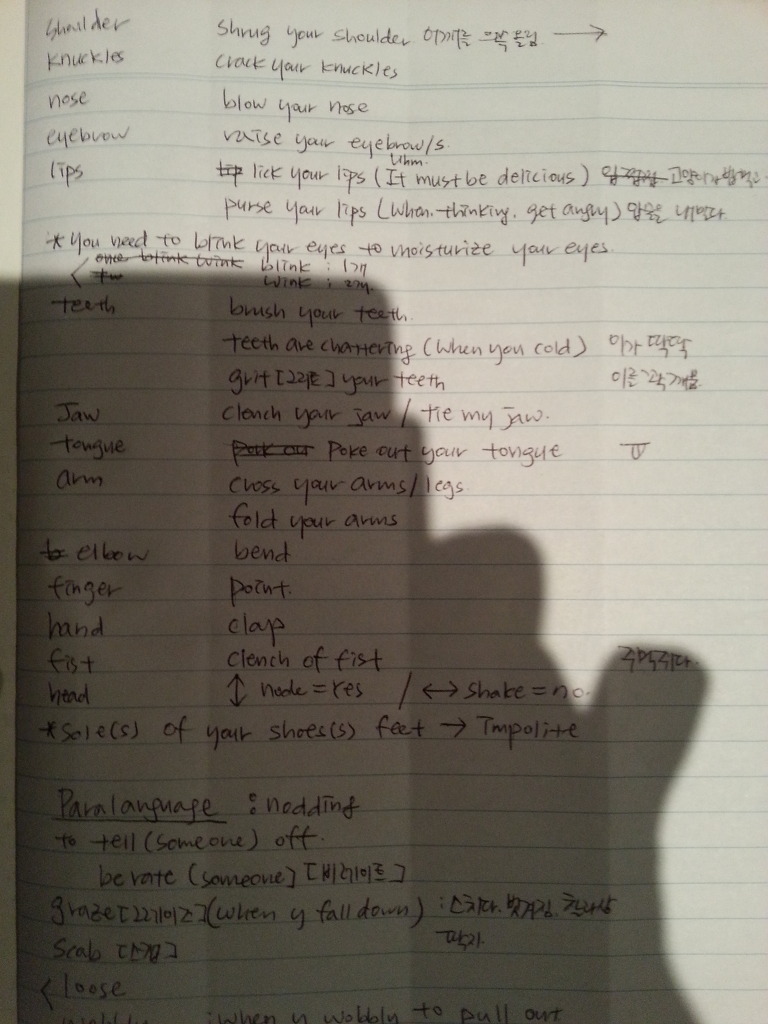 shoulder shrug your shoulder 어깨를 으쓱 올림 →
knuckles crack your knuckles
nose blow your nose
eyebrow raise your eyebrow/s.
lips lick your lips (It must be delicious) 고양이가 밥먹고
Uhm.
purse your lips (when. thinking. get angry) 입술을 내민다
* You need to blink your eyes to moisturize your eyes.
once blink wink blink : 1개
wink : 2개.
teeth brush your teeth.
teeth are chattering (when you cold) 이가 딱딱
grit [그리트] your teeth 이를 꽉 깨욺
Jaw clench your jaw / tie my jaw.
tongue Pork out Poke out your tongue
arm cross your arms/legs.
fold your arms
elbow bend
finger point.
hand clap
fist clench of fist 주먹쥐다.
head ↕ node = Yes / ↔ shake = no.
* Sole(s) of your shoes(s) feet → Impolite
Paralanguage : nodding
to tell (someone) off.
berate (someone] [비레이트]
graze [그레이즈] (when y fall down) : 스치다. 벗겨짐. 찰과상
Scab [스캡] 딱지
< loose
wobbly : when y wobbly to pull out